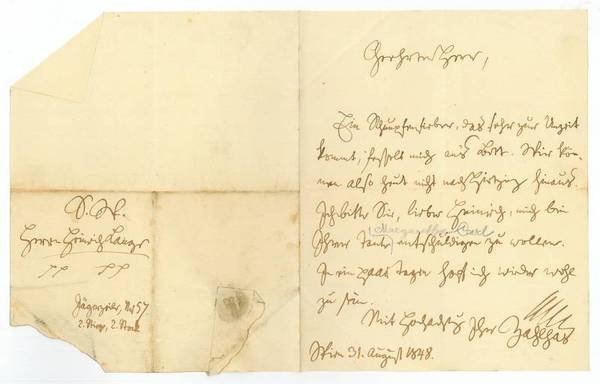 S.
Herrn Heinrich
Jägerzeile, Nr 57
2. Stiege, 2. Stock
Geehrter Herr,
Ein Schnupfenfieber, das sehr zur Unzeit
kommt, fesselt mich ans Bett. Wir kön-
nen also heut nicht nach Hietzing hinaus.
Ich bitte Sie, lieber Heinrich, mich bei
(Margaretha Carl)
Ihrer Tante entschuldigen zu wollen.
In ein paar Tagen hoff ich wieder wohl
zu sein.
Mit Hochachtg Ihr Zahlhas
Wien 31. August 1848.